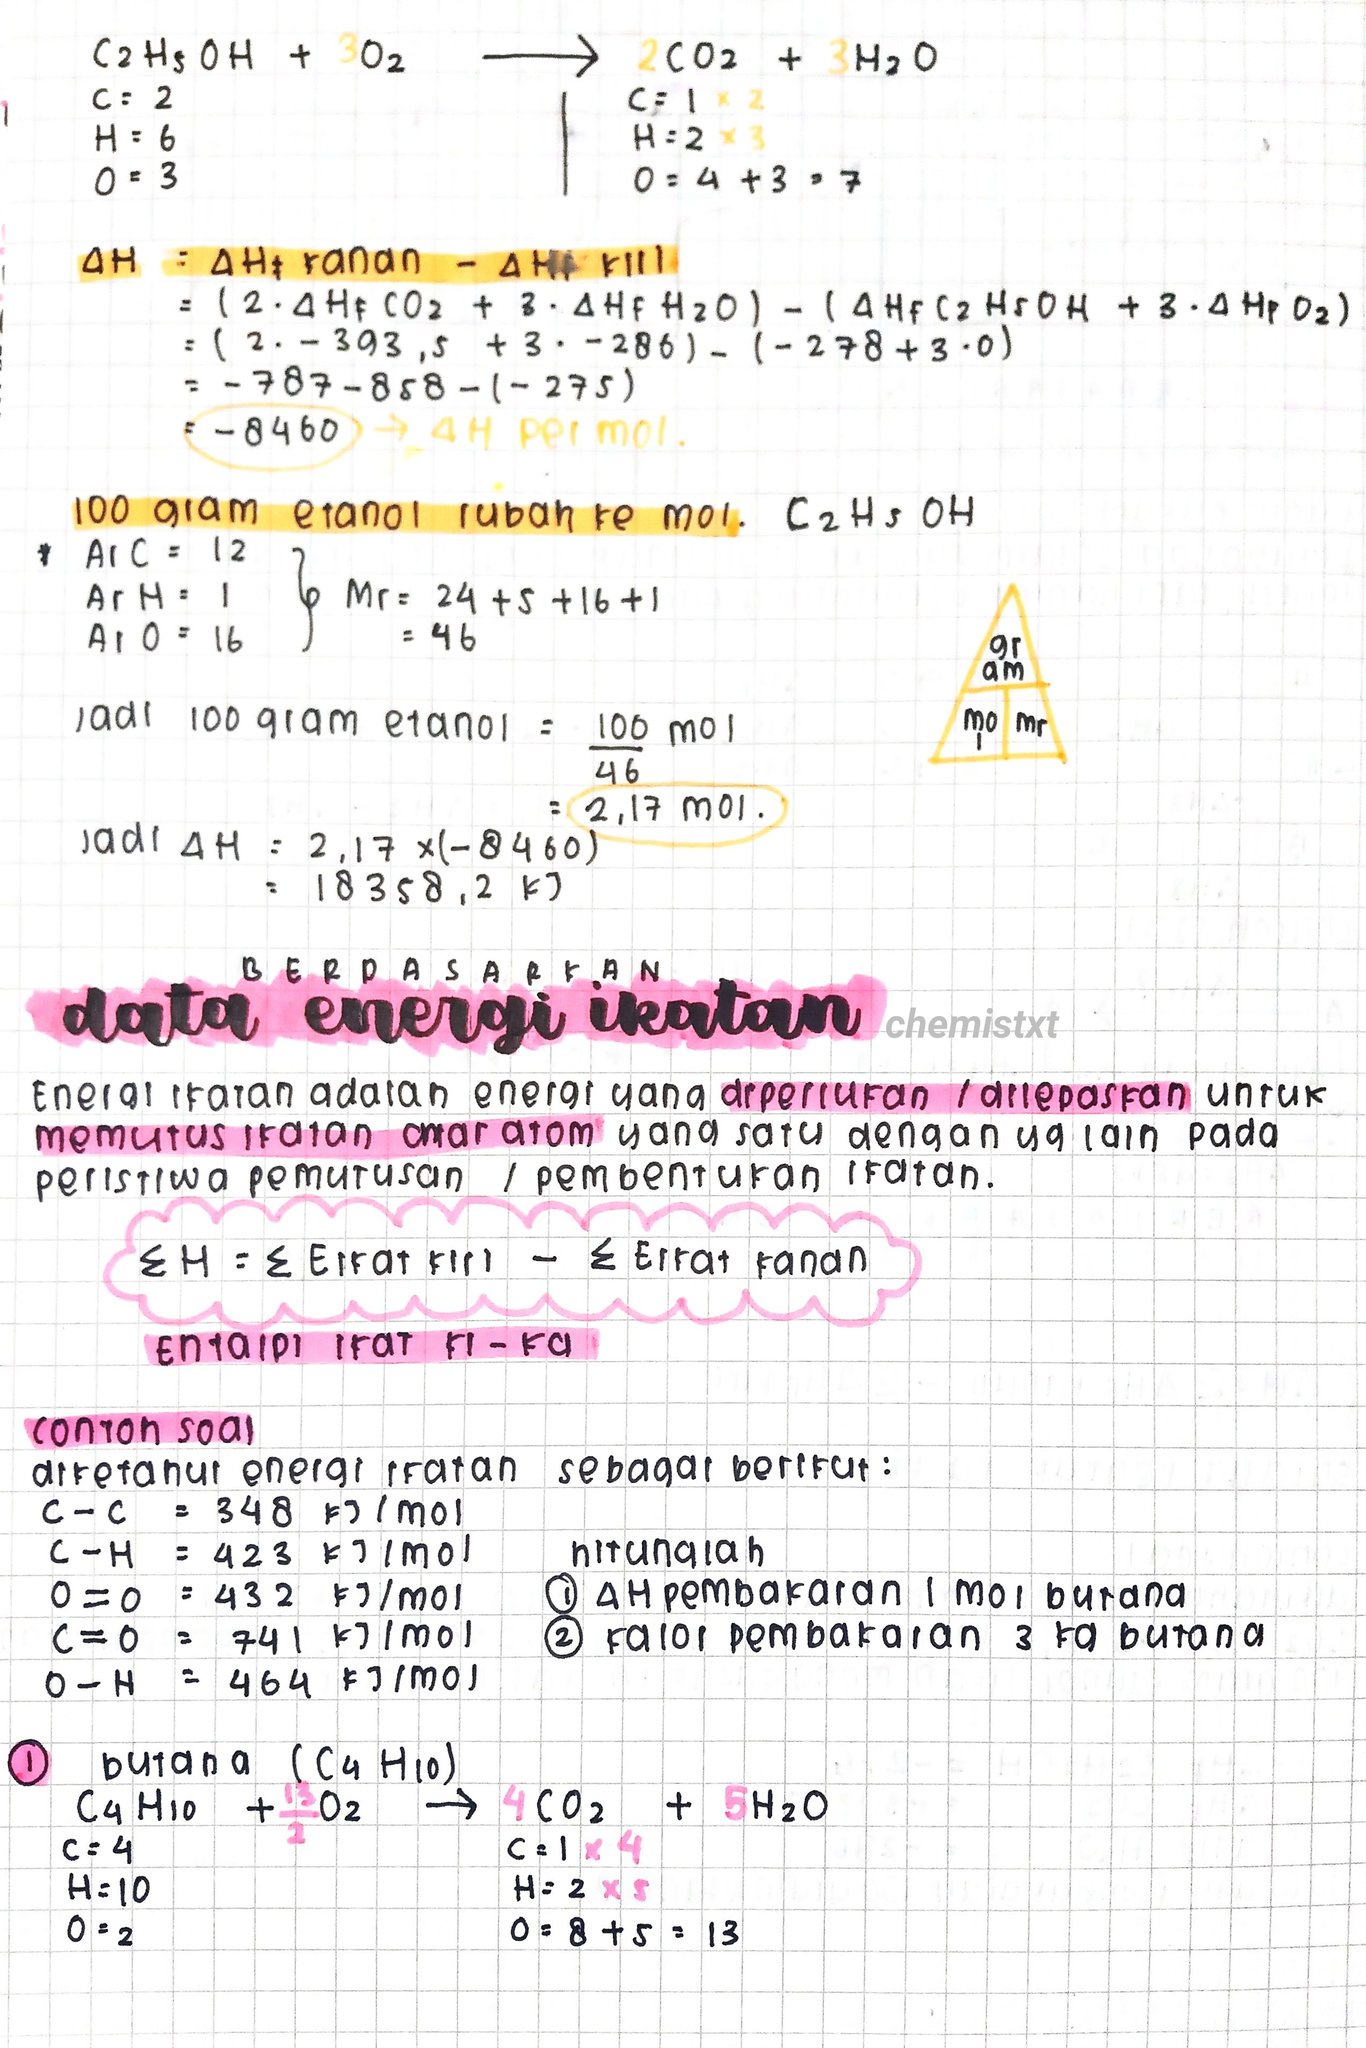 C2H5OH + 3O2 → 2CO2 + 3H2O
C = 2 C = 1 × 2
H = 6 H = 2 × 3
O = 3 O = 4 + 3 = 7
ΔH = ΔHf kanan - ΔHf kiri
= (2 . ΔHf CO2 + 3 . ΔHf H2O) - (ΔHf C2H5OH + 3 . ΔHf O2)
= (2 . -393,5 + 3 . -286) - (-278 + 3 . 0)
= -787 - 858 - (-275)
= -8460 → ΔH per mol.
100 gram etanol rubah ke mol. C2H5OH
* Ar C = 12
Ar H = 1 Mr = 24 + 5 + 16 + 1
Ar O = 16 = 46
gr
am
mo
l
mr
Jadi 100 gram etanol = 100/46 mol
= 2,17 mol.
Jadi ΔH = 2,17 × (-8460)
= 18358,2 kJ
BERDASARKAN
data energi ikatan chemistxt
Energi ikatan adalah energi yang diperlukan / dilepaskan untuk
memutus ikatan antar atom yang satu dengan yg lain pada
peristiwa pemutusan / pembentukan ikatan.
ΣH = Σ E ikat kiri - Σ E ikat kanan
Entalpi ikat ki-ka
contoh soal
diketahui energi ikatan sebagai berikut :
C-C = 348 kJ/mol
C-H = 423 kJ/mol hitunglah
O=O = 432 kJ/mol ① ΔH pembakaran 1 mol butana
C=O = 741 kJ/mol ② kalor pembakaran 3 kg butana
O-H = 464 kJ/mol
① butana (C4H10)
C4H10 + 13/2 O2 → 4CO2 + 5H2O
C = 4 C = 1 × 4
H = 10 H = 2 × 5
O = 2 O = 8 + 5 = 13